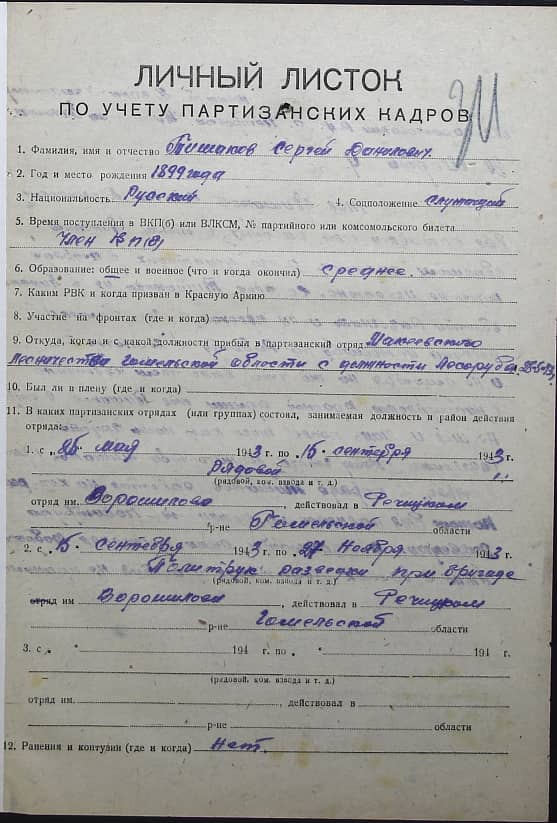 ЛИЧНЫЙ ЛИСТОК
ПО УЧЕТУ ПАРТИЗАНСКИХ КАДРОВ
1. Фамилия, имя и отчество Тишаков Сергей Данилович.
2. Год и место рождения 1899 года
3. Национальность Русский 4. Соцположение служащий
5. Время поступления в ВКП(б) или ВЛКСМ, № партийного или комсомольского билета
Член ВКП(б)
6. Образование: общее и военное (что и когда окончил) среднее.
7. Каким РВК и когда призван в Красную Армию
8. Участие на фронтах (где и когда)
9. Откуда, когда и с какой должности прибыл в партизанский отряд Макеевского
лесничества Гомельской области с должности Лесоруба
10. Был ли в плену (где и когда)
11. В каких партизанских отрядах (или группах) состоял, занимаемая должность и район действия
отряда:
1. с 25 май 1943 г. по 15. сентября 1943 г.
Рядовой
(рядовой, ком. взвода и т. д.)
отряд им. Ворошилова, действовал в Речицком
р-не Гомельской области
2. с 15 сентября 1943 г. по 27 Ноября 1943 г.
Политрук разведки при бригаде
(рядовой, ком. взвода и т. д.)
отряд им Ворошилова, действовал в Речицком
р-не Гомельской области
3. с 194 г. по 194 г.
(рядовой, ком. взвода и т. д.)
отряд им. , действовал в
р-не области
12. Ранения и контузии (где и когда) Нет.